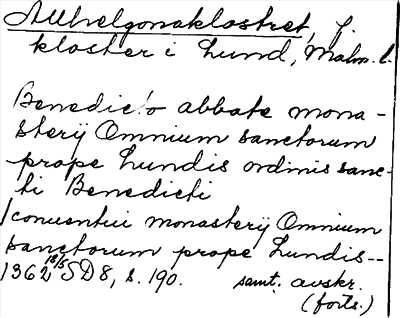 Allhelgonaklostret, f.
kloster i Lund, Malm. l.
Benedicto abbate mona-
sterij Omnium sanctorum
prope Lundis ordinis sanc-
ti Benedicti
conuentui monasterij Omnium
sanctorum prope Lundis--
1362 18/5 SD 8, s. 190. samt. avskr.
(forts.)